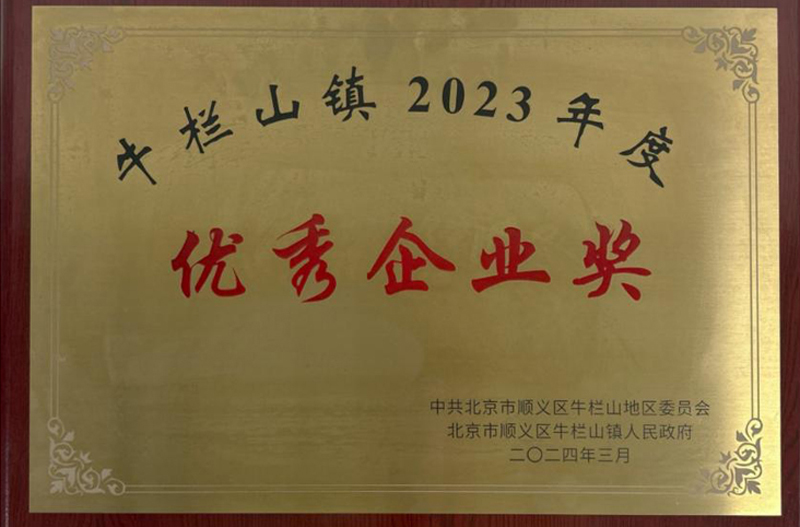 牛栏山镇 2023 年度
优秀企业奖
中共北京市顺义区牛栏山地区委员会
北京市顺义区牛栏山镇人民政府
二〇二四年三月